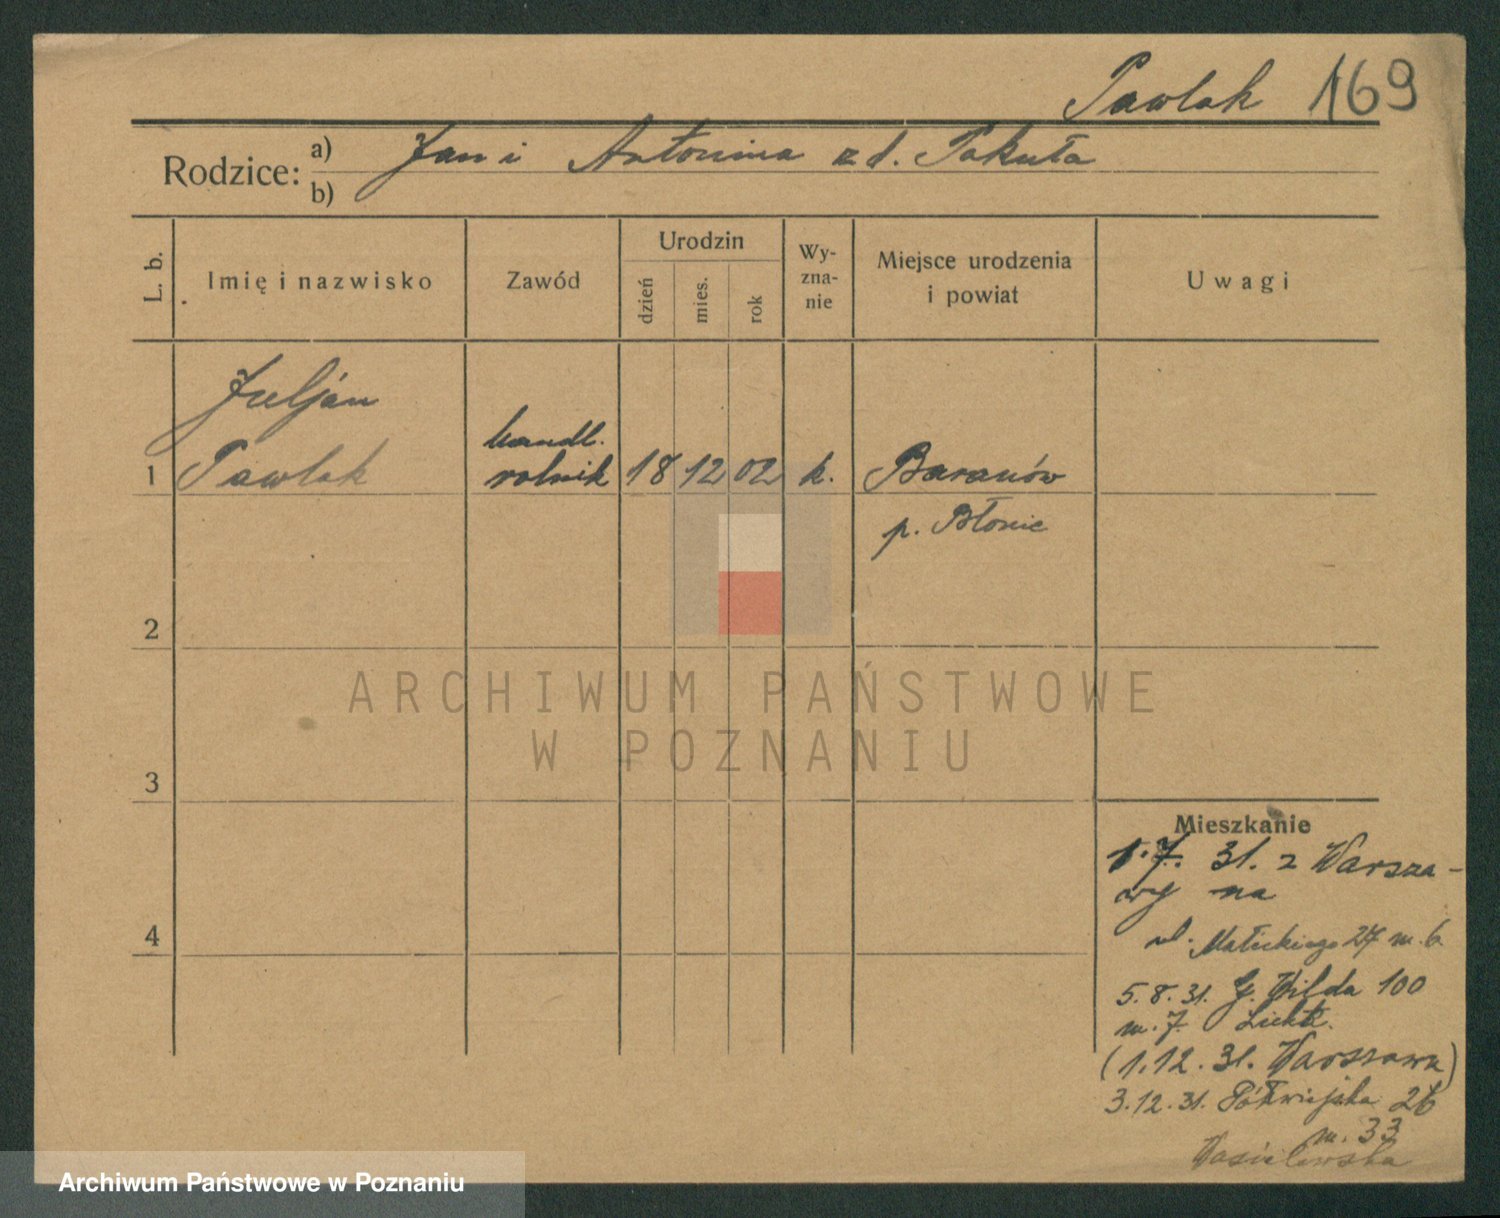 Pawlak 169
Rodzice: a) Jan i Antonina z d. Pakuła
b)
L. b.
Imię i nazwisko
Zawód
Urodzin
dzień
mies.
rok
Wy-
zna-
nie
Miejsce urodzenia
i powiat
Uwagi
Juljan
handl.
1 Pawlak rolnik 18 12 02 k. Baranów
p. Błonie
2
3
4
ARCHIWUM PAŃSTWOWE
W POZNANIU
Mieszkanie
1.7. 31. z Warsza-
wy na
ul. Małeckiego 27 m. 6
5.8.31. G. Wilda 100
m. 7
(1.12.31. Warszawa)
3.12.31. Półwiejska 26
m. 33
Wasielewska
Archiwum Państwowe w Poznaniu